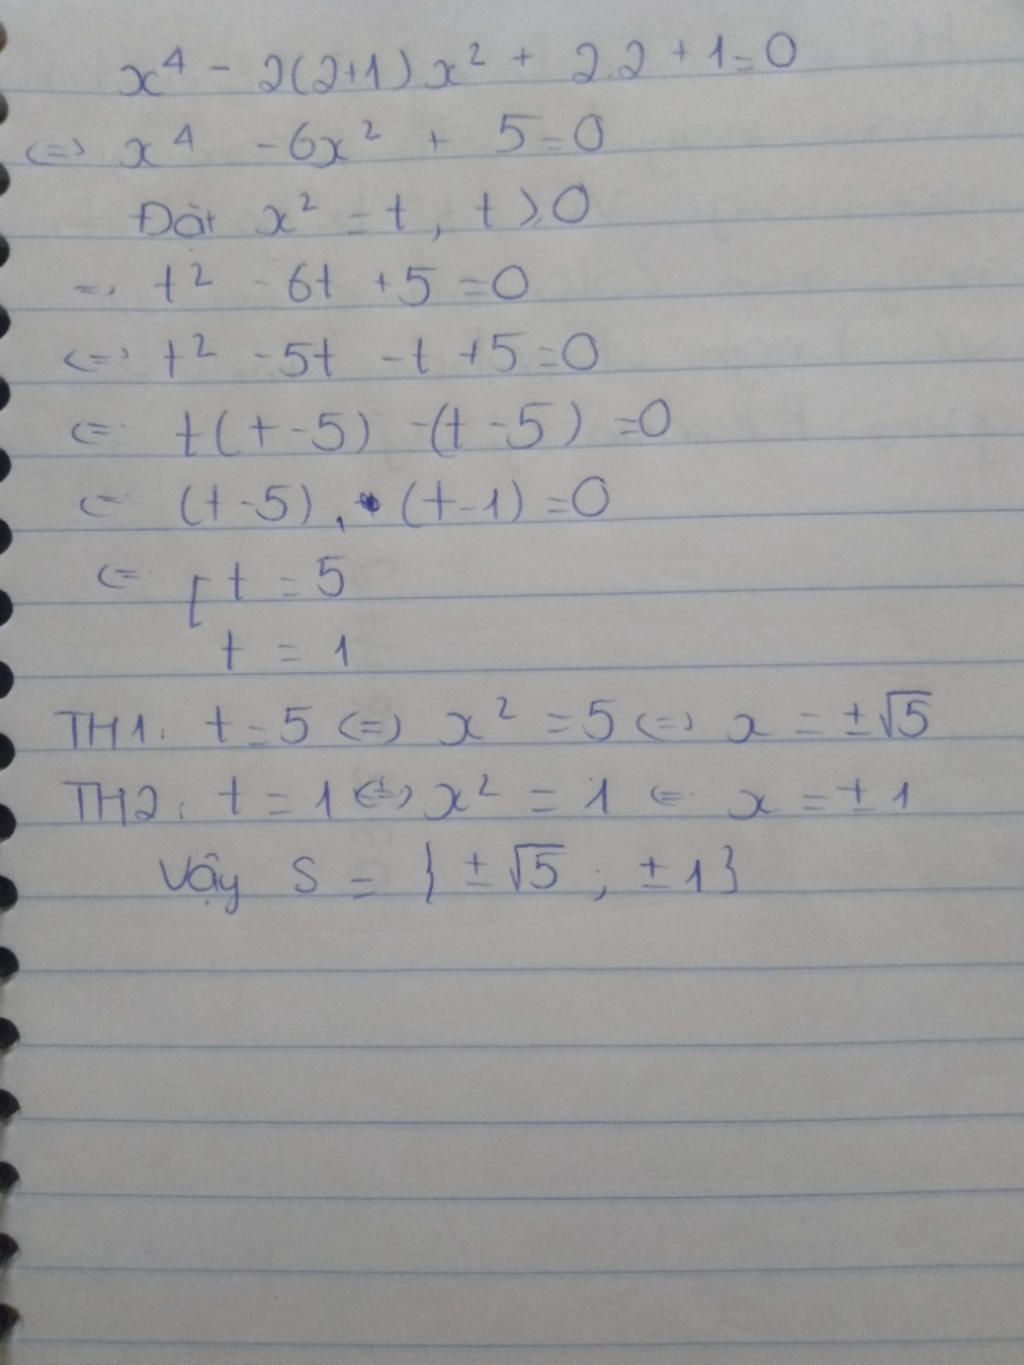 x⁴ - 2(2+1)x² + 2.2 + 1 = 0
<=> x⁴ - 6x² + 5 = 0
Đặt x² = t, t ≥ 0
=> t² - 6t + 5 = 0
<=> t² - 5t - t + 5 = 0
<=> t(t - 5) - (t - 5) = 0
<=> (t - 5) . (t - 1) = 0
<=> [ t = 5
t = 1
TH1: t = 5 <=> x² = 5 <=> x = ±√5
TH2: t = 1 <=> x² = 1 <=> x = ±1
Vậy S = {±√5 ; ±1}